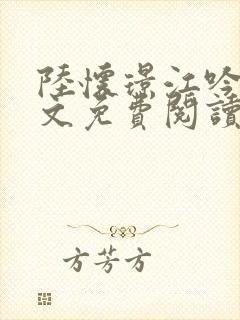 陸懷璟江吟
文免費閱讀
方芳方